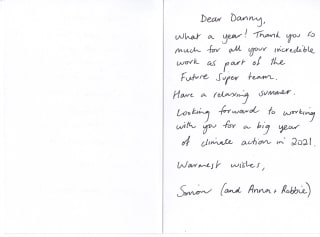 Dear Danny,
What a year! Thank you so
much for all your incredible
work as part of the
Future Super team.
Have a relaxing summer.
Looking forward to working
with you for a big year
of climate action in 2021.
Warmest wishes,
Simon (and Anna + Robbie)